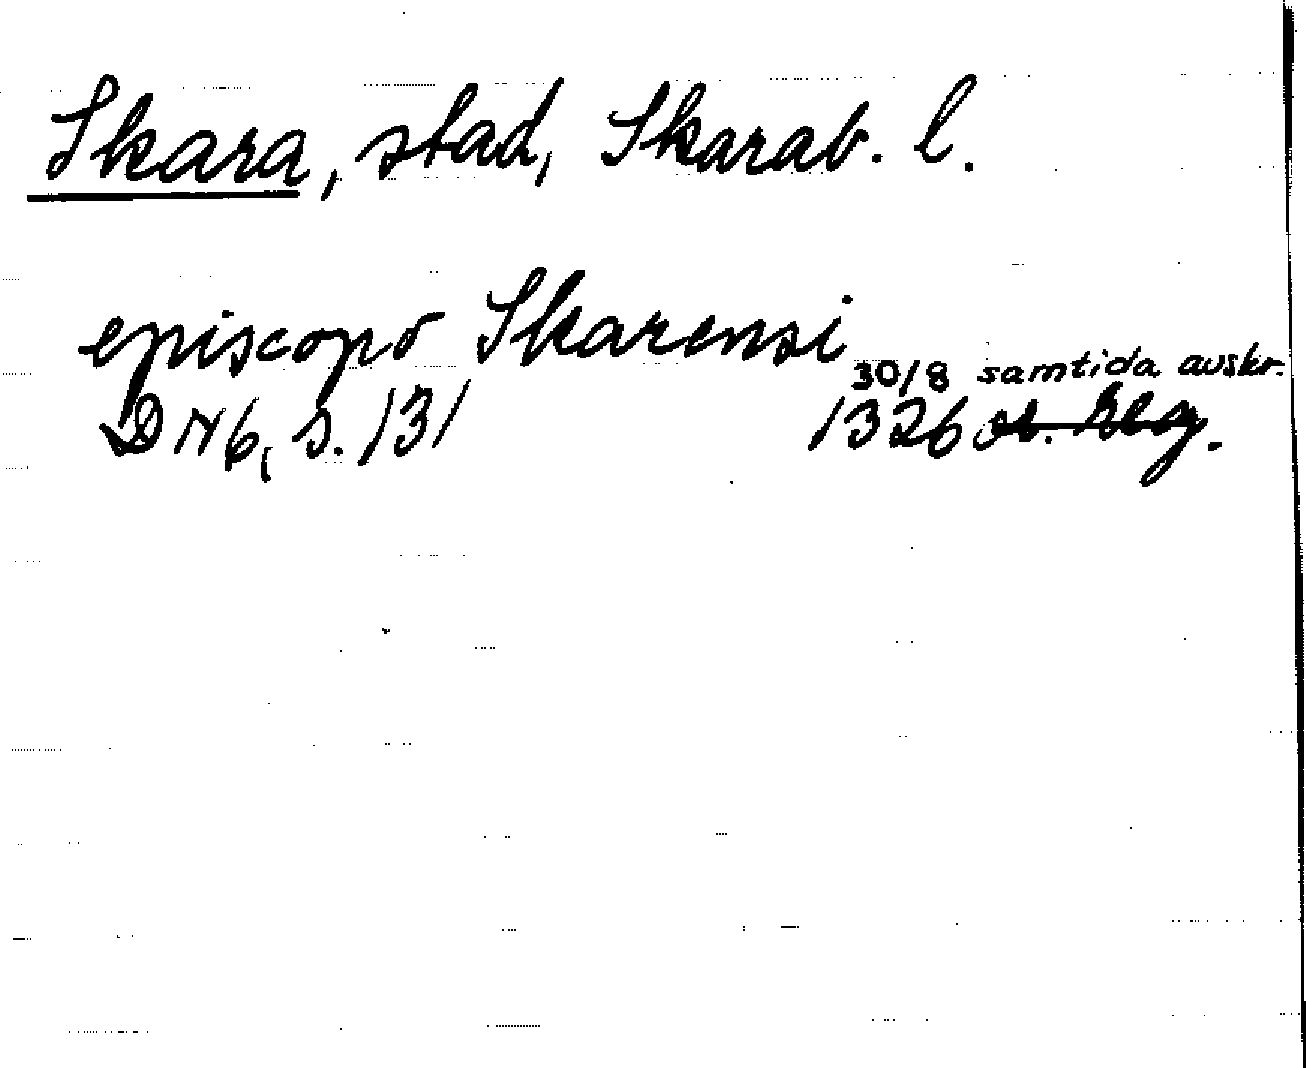 Skara, stad, Skarab. l.
episcopo Skarensi
30/8 samtida avskr.
DN 6, s. 131 1326